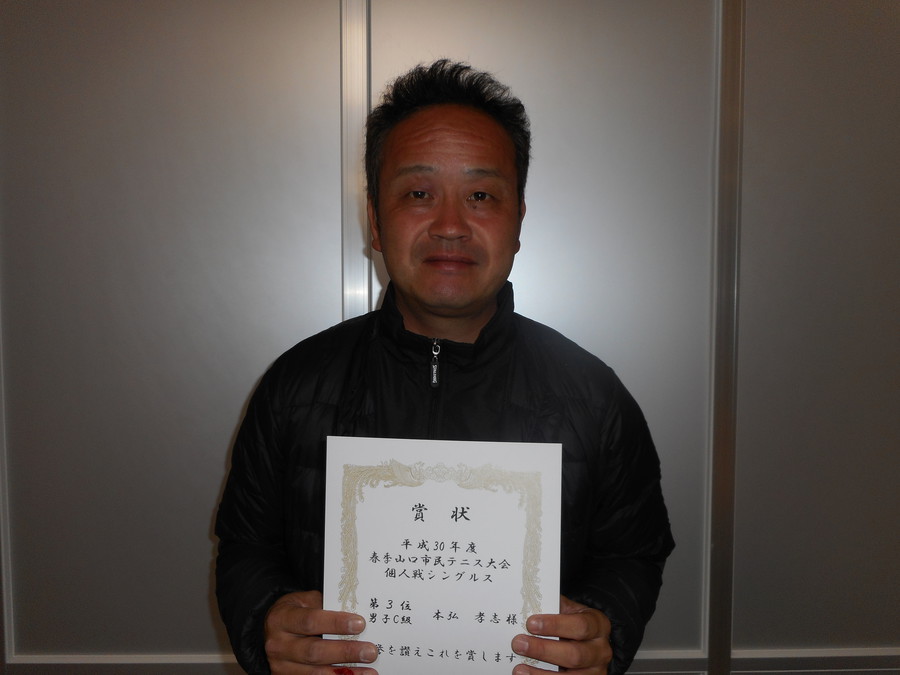 賞状
平成30年度
春季山口市民テニス大会
個人戦シングルス
第3位
男子C級 本弘 孝志様
誉を讃えこれを賞します